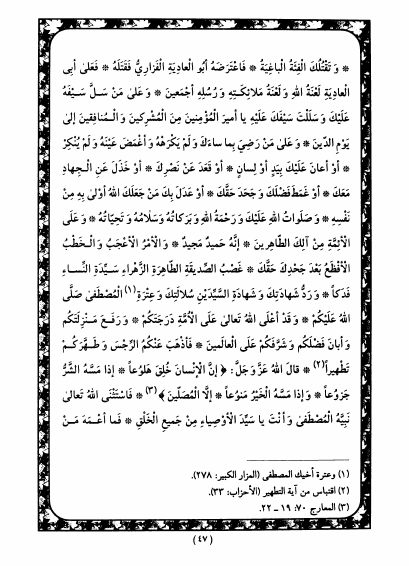 * وَ تَقْتُلُكَ الْفِئَةُ الْبَاغِيَةُ * فَاعْتَرَضَهُ أَبُو الْعَادِيَةِ الْفَزَارِيُّ فَقَتَلَهُ * فَعَلىٰ أبِی
الْعادِيَةِ لَعْنَةُ اللهِ وَ لَعْنَةُ مَلائِكَتِهِ وَ رُسُلِهِ أجْمَعينَ * وَ عَلىٰ مَنْ سَلَّ سَيْفَهُ
عَلَيْكَ وَ سَلَلْتَ سَيْفَكَ عَلَيْهِ يا أميرَ الْمُؤْمِنينَ مِنَ الْمُشْرِكينَ وَ الْـمُنافِقينَ إلىٰ
يَوْمِ الدّينِ * وَ عَلىٰ مَنْ رَضِيَ بِما ساءَكَ وَ لَمْ يَكْرَهْهُ وَ أغْمَضَ عَيْنَهُ وَ لَمْ يُنْكِرْ
* أوْ أعانَ عَلَيْكَ بِيَدٍ أوْ لِسانٍ * أوْ قَعَدَ عَنْ نَصْرِكَ * أوْ خَذَلَ عَنِ الْـجِهادِ
مَعَكَ * أوْ غَمَطَ فَضْلَكَ وَ جَحَدَ حَقَّكَ * أوْ عَدَلَ بِكَ مَنْ جَعَلَكَ اللهُ أوْلىٰ بِهِ مِنْ
نَفْسِهِ * وَ صَلَواتُ اللهِ عَلَيْكَ وَ رَحْمَةُ اللهِ وَ بَرَكاتُهُ وَ سَلامُهُ وَ تَحِيّاتُهُ * وَ عَلَى
الْأئِمَّةِ مِنْ آلِكَ الطّاهِرينَ * إنَّهُ حَميدٌ مَجيدٌ * وَ الْأمْرُ الْأعْجَبُ وَ الْـخَطْبُ
الْأفْظَعُ بَعْدَ جَحْدِكَ حَقَّكَ * غَصْبُ الصِّديقَةِ الطّاهِرَةِ الزَّهْراءِ سَيِّدَةِ النِّسـاءِ
فَدَكاً * وَ رَدُّ شَهادَتِكَ وَ شَهادَةِ السَّيِّدَيْنِ سُلالَتِكَ وَ عِتْرَةِ(١) الْمُصْطَفىٰ صَلَّى
اللهُ عَلَيْكُمْ * وَ قَدْ أعْلَى اللهُ تَعالىٰ عَلَى الْأُمَّةِ دَرَجَتَكُمْ * وَ رَفَـعَ مَـنْزِلَتَكُمْ
وَ أبانَ فَضْلَكُمْ وَ شَرَّفَكُمْ عَلَى الْعالَمينَ * فَأذْهَبَ عَنْكُمُ الرِّجْسَ وَ طَـهَّرَكُـمْ
تَطْهيراً(٢) * قالَ اللهُ عَزَّ وَ جَلَّ: ﴿ إنَّ الْإنْسانَ خُلِقَ هَلُوعاً * إذا مَسَّهُ الشَّرُّ
جَزُوعاً * وَ إذا مَسَّهُ الْخَيْرُ مَنُوعاً * إلَّا الْمُصَلّينَ ﴾(٣) * فَاسْتَثْنَى اللهُ تَعالىٰ
نَبِيَّهُ الْمُصْطَفىٰ وَ أنْتَ يا سَيِّدَ الْأوْصِياءِ مِنْ جَميعِ الْخَلْقِ * فَما أعْـمَـهَ مَـنْ
(١) وعترة أخيك المصطفى (المزار الكبير: ٢٧٨).
(٢) اقتباس من آية التطهير (الأحزاب: ٣٣).
(٣) المعارج ٧٠: ١٩ ـ ٢٢.
(٤٧)